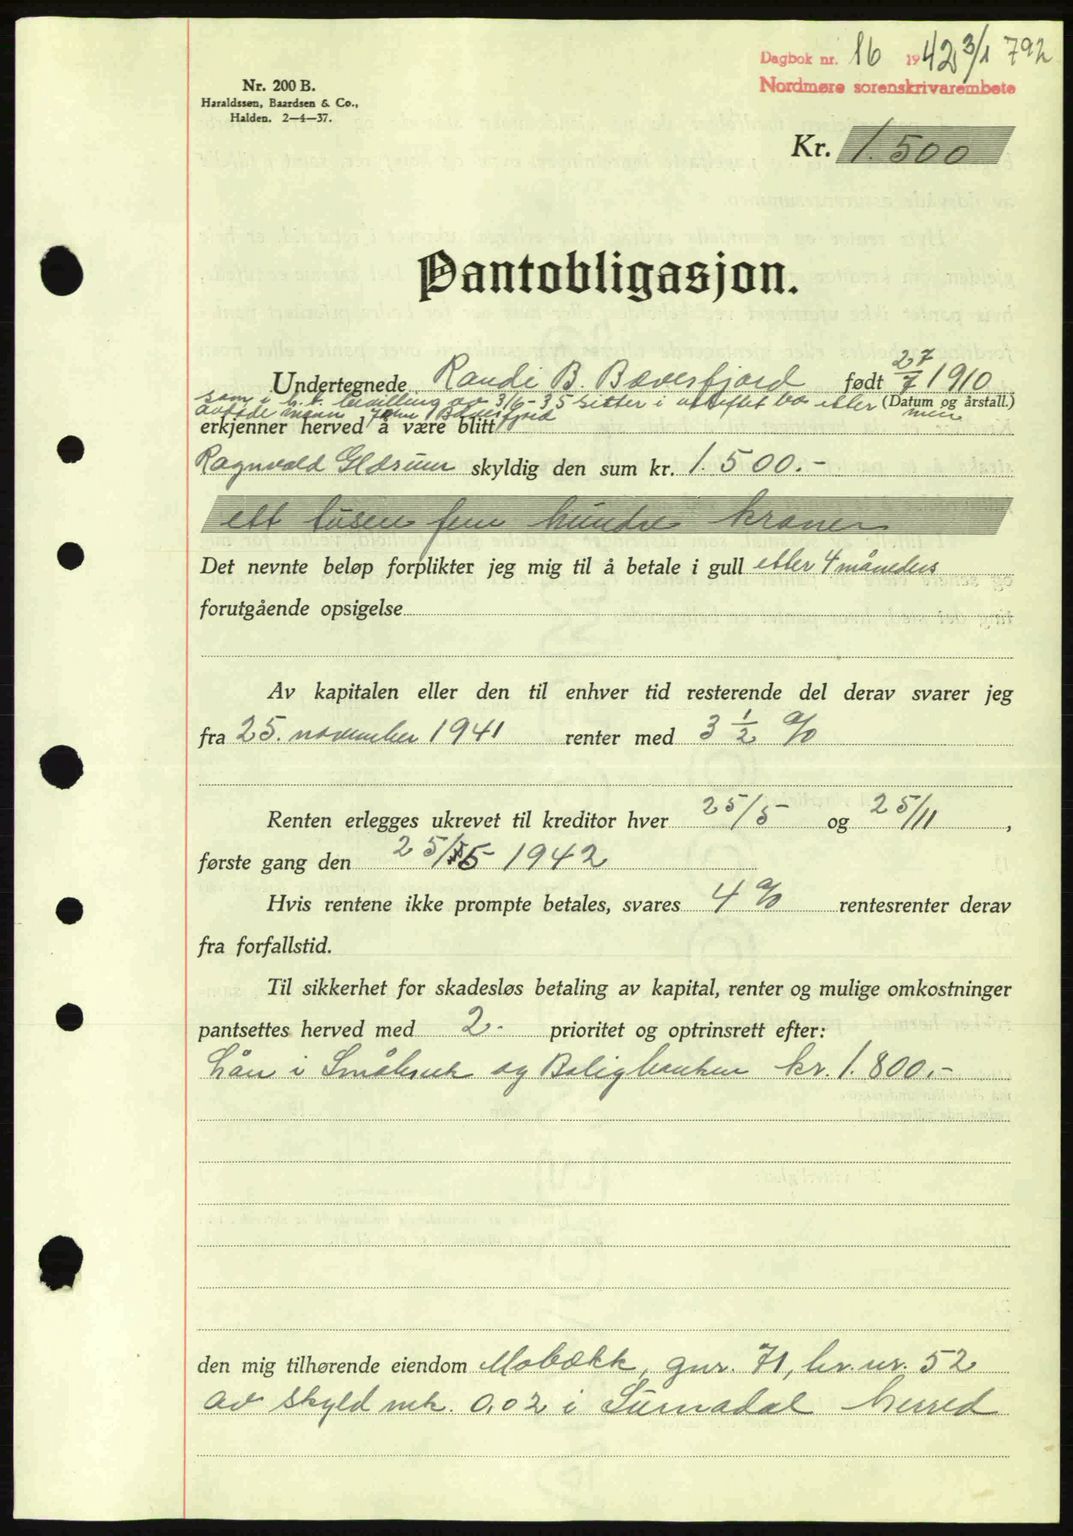 Dagbok nr. 16 1942 3/1 792
Nordmøre sorenskrivarembete
Nr. 200 B.
Haraldssen, Baardsen & Co.,
Halden. 2-4-37.
Kr. 1.500
Pantobligasjon.
Undertegnede Randi B. Bævesfjord født 27/7 1910
(Datum og årstall.)
som i h.t. bevilling av 3/6-35 sitter i uskiftet bo etter min
avdøde mann John Bævesfjord
erkjenner herved å være blitt
Ragnvald Glærum skyldig den sum kr. 1.500.-
ett tusen fem hundre kroner
Det nevnte beløp forplikter jeg mig til å betale i gull etter 4 måneders
forutgående opsigelse
Av kapitalen eller den til enhver tid resterende del derav svarer jeg
fra 25. november 1941 renter med 3 1/2 %
Renten erlegges ukrevet til kreditor hver 25/5 og 25/11,
første gang den 25/5 1942
Hvis rentene ikke prompte betales, svares 4 % rentesrenter derav
fra forfallstid.
Til sikkerhet for skadesløs betaling av kapital, renter og mulige omkostninger
pantsettes herved med 2. prioritet og optrinsrett efter:
Lån i Småbruk og Boligbanken kr. 1.800.-
den mig tilhørende eiendom Mobækk, gnr. 71, br.nr. 52
av skyld mk. 0,02 i Surnadal herred